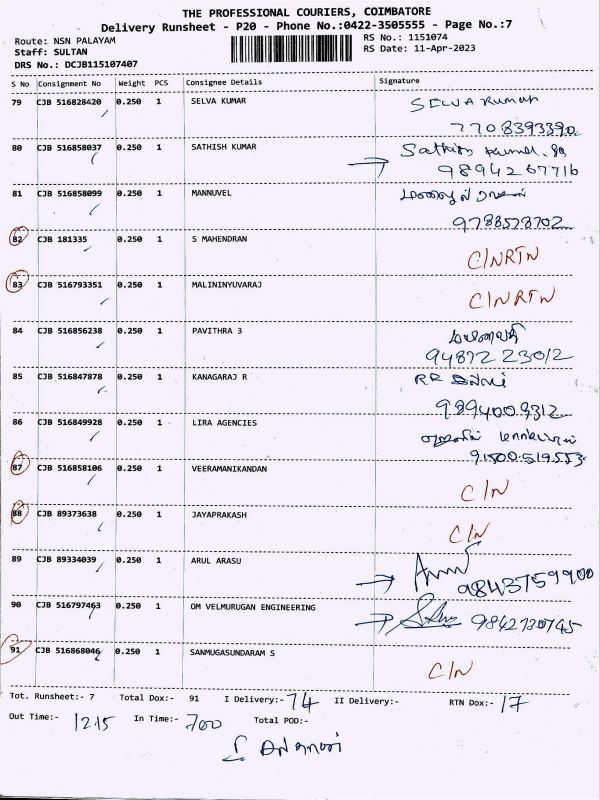 THE PROFESSIONAL COURIERS, COIMBATORE
Delivery Runsheet - P20 - Phone No.:0422-3505555 - Page No.:7
Route: NSN PALAYAM RS No.: 1151074
Staff: SULTAN RS Date: 11-Apr-2023
DRS No.: DCJB115107407
S No Consignment No Weight PCS Consignee Details Signature
79 CJB 516828420 0.250 1 SELVA KUMAR SELVA Kumar
7708393390
80 CJB 516858037 0.250 1 SATHISH KUMAR Sathish Kumar
9894267716
81 CJB 516858099 0.250 1 MANNUVEL
9788578702
82 CJB 181335 0.250 1 S MAHENDRAN C/NRTN
83 CJB 516793351 0.250 1 MALININYUVARAJ C/NRTN
84 CJB 516856238 0.250 1 PAVITHRA 3
94872 23012
85 CJB 516847878 0.250 1 KANAGARAJ R RR
9894009312
86 CJB 516849928 0.250 1 LIRA AGENCIES
91500 519553
87 CJB 516858106 0.250 1 VEERAMANIKANDAN C/N
88 CJB 89373638 0.250 1 JAYAPRAKASH C/N
89 CJB 89334039 0.250 1 ARUL ARASU 9843759900
90 CJB 516797463 0.250 1 OM VELMURUGAN ENGINEERING 9842730745
91 CJB 516868046 0.250 1 SANMUGASUNDARAM S C/N
Tot. Runsheet:- 7 Total Dox:- 91 I Delivery:- 74 II Delivery:- RTN Dox:- 17
Out Time:- 1215 In Time:- 700 Total POD:-